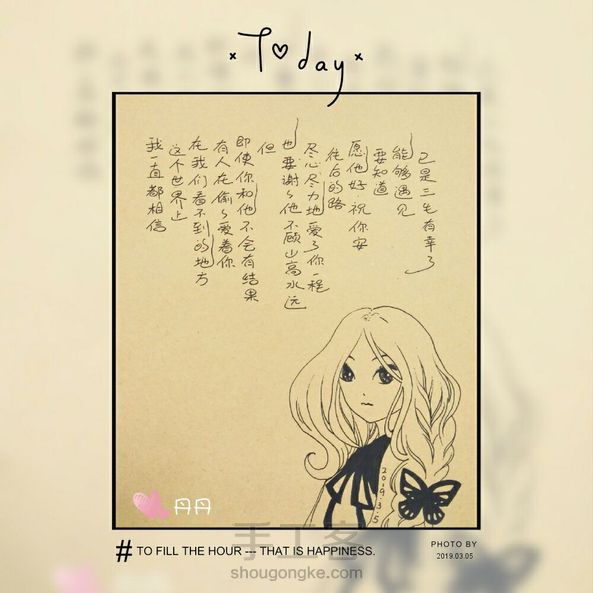 Today
我一直都相信
这个世界上
在我们看不到的地方
有人在偷々爱着你
即使你和他不会有结果
但
也要谢々他不顾山高水远
尽心尽力地爱了你一程
往后的路
愿他好 祝你安
要知道
能够遇见
已是三生有幸了
2019.3.5
丹丹
# TO FILL THE HOUR --- THAT IS HAPPINESS.
PHOTO BY
2019.03.05
手工客
shougongke.com